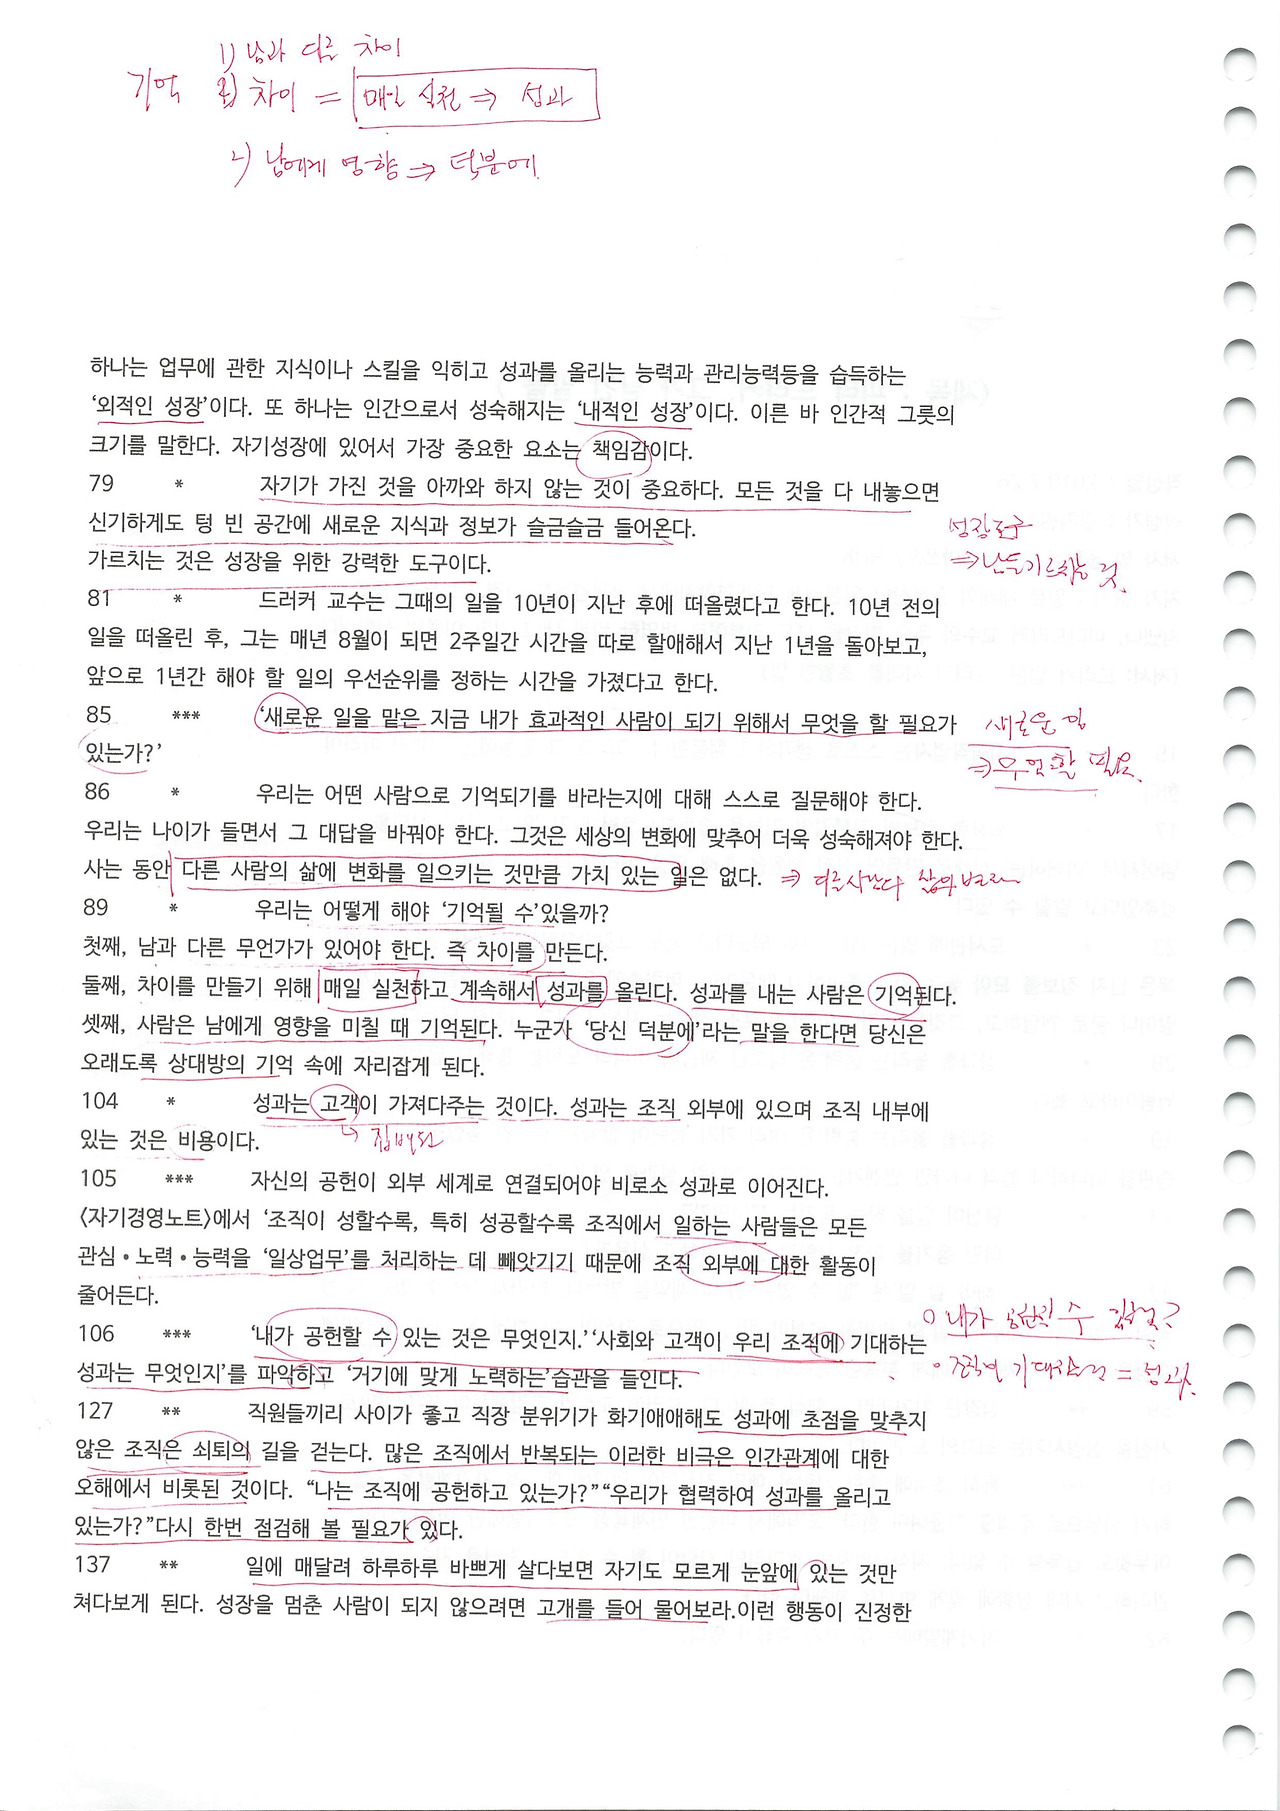 1) 남과 다른 차이
기억 2) 차이 = 매일 실천 ⇒ 성과
2) 남에게 영향 ⇒ 덕분에
하나는 업무에 관한 지식이나 스킬을 익히고 성과를 올리는 능력과 관리능력등을 습득하는
‘외적인 성장’이다. 또 하나는 인간으로서 성숙해지는 ‘내적인 성장’이다. 이른 바 인간적 그릇의
크기를 말한다. 자기성장에 있어서 가장 중요한 요소는 책임감이다.
79 * 자기가 가진 것을 아까와 하지 않는 것이 중요하다. 모든 것을 다 내놓으면
신기하게도 텅 빈 공간에 새로운 지식과 정보가 슬금슬금 들어온다.
성장도구
가르치는 것은 성장을 위한 강력한 도구이다.
⇒ 남을 가르치는 것.
81 * 드러커 교수는 그때의 일을 10년이 지난 후에 떠올렸다고 한다. 10년 전의
일을 떠올린 후, 그는 매년 8월이 되면 2주일간 시간을 따로 할애해서 지난 1년을 돌아보고,
앞으로 1년간 해야 할 일의 우선순위를 정하는 시간을 가졌다고 한다.
85 *** ‘새로운 일을 맡은 지금 내가 효과적인 사람이 되기 위해서 무엇을 할 필요가
새로운 일
있는가?’
⇒ 무엇을 할 필요.
86 * 우리는 어떤 사람으로 기억되기를 바라는지에 대해 스스로 질문해야 한다.
우리는 나이가 들면서 그 대답을 바꿔야 한다. 그것은 세상의 변화에 맞추어 더욱 성숙해져야 한다.
사는 동안 다른 사람의 삶에 변화를 일으키는 것만큼 가치 있는 일은 없다. ⇒ 다른 삶의 변화
89 * 우리는 어떻게 해야 ‘기억될 수’있을까?
첫째, 남과 다른 무언가가 있어야 한다. 즉 차이를 만든다.
둘째, 차이를 만들기 위해 매일 실천하고 계속해서 성과를 올린다. 성과를 내는 사람은 기억된다.
셋째, 사람은 남에게 영향을 미칠 때 기억된다. 누군가 ‘당신 덕분에’라는 말을 한다면 당신은
오래도록 상대방의 기억 속에 자리잡게 된다.
104 * 성과는 고객이 가져다주는 것이다. 성과는 조직 외부에 있으며 조직 내부에
있는 것은 비용이다.
105 *** 자신의 공헌이 외부 세계로 연결되어야 비로소 성과로 이어진다.
〈자기경영노트〉에서 ‘조직이 성할수록, 특히 성공할수록 조직에서 일하는 사람들은 모든
관심•노력•능력을 ‘일상업무’를 처리하는 데 빼앗기기 때문에 조직 외부에 대한 활동이
줄어든다.
106 *** ‘내가 공헌할 수 있는 것은 무엇인지.’‘사회와 고객이 우리 조직에 기대하는
내가 공헌할 수 있는 것?
성과는 무엇인지’를 파악하고 ‘거기에 맞게 노력하는’습관을 들인다.
조직에 기대하는 = 성과
127 ** 직원들끼리 사이가 좋고 직장 분위기가 화기애애해도 성과에 초점을 맞추지
않은 조직은 쇠퇴의 길을 걷는다. 많은 조직에서 반복되는 이러한 비극은 인간관계에 대한
오해에서 비롯된 것이다. “나는 조직에 공헌하고 있는가?”“우리가 협력하여 성과를 올리고
있는가?”다시 한번 점검해 볼 필요가 있다.
137 ** 일에 매달려 하루하루 바쁘게 살다보면 자기도 모르게 눈앞에 있는 것만
쳐다보게 된다. 성장을 멈춘 사람이 되지 않으려면 고개를 들어 물어보라.이런 행동이 진정한